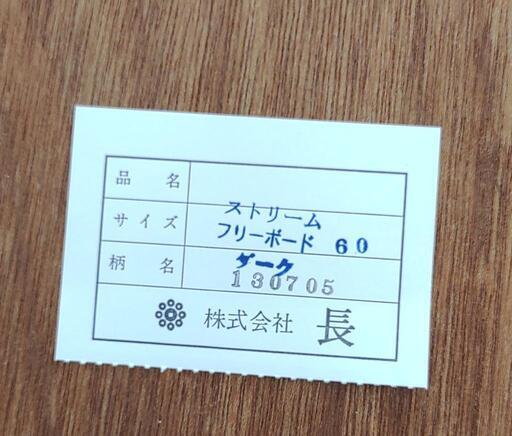 品名
ストリーム
サイズ フリーボード 60
柄名 ダーク
130705
株式会社 長